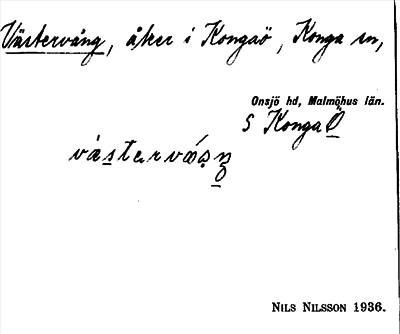 Västervång, åker i Kongaö, Konga sn,
Onsjö hd, Malmöhus län.
S Konga Ö
NILS NILSSON 1936.